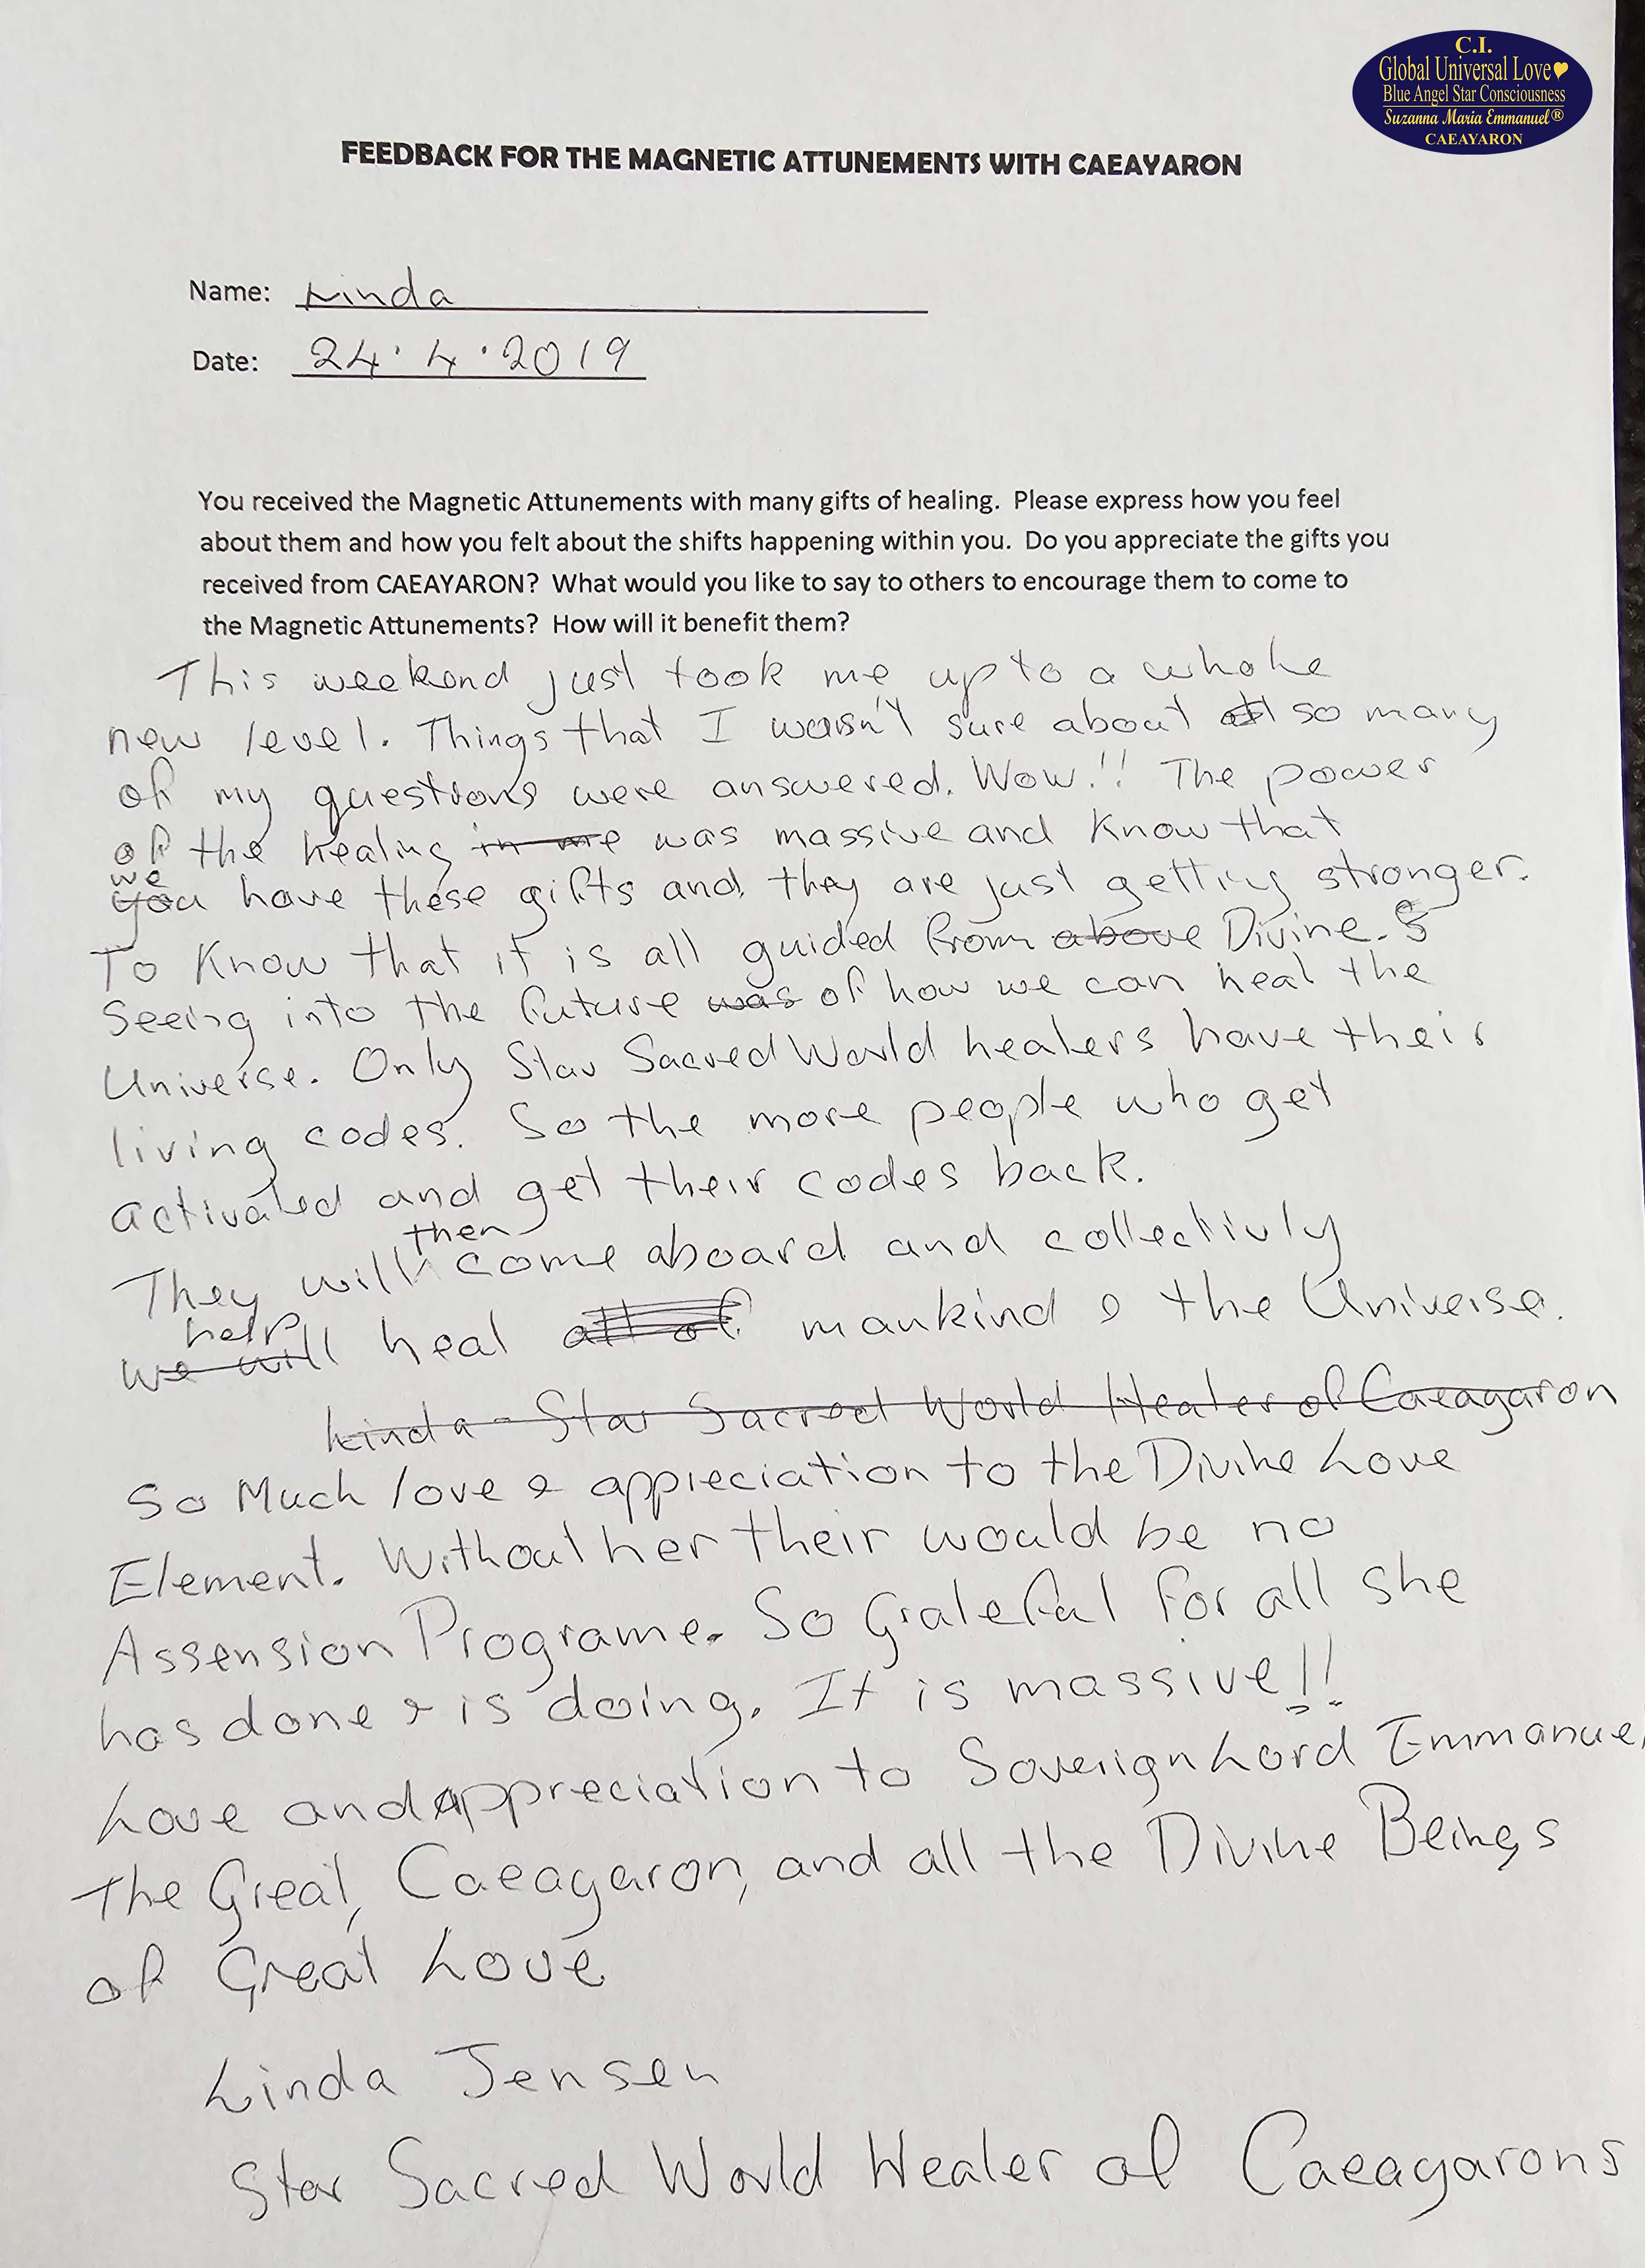 C.I.
Global Universal Love
Blue Angel Star Consciousness
Suzanna Maria Emmanuel®
CAEAYARON
FEEDBACK FOR THE MAGNETIC ATTUNEMENTS WITH CAEAYARON
Name: Linda
Date: 24.4.2019
You received the Magnetic Attunements with many gifts of healing. Please express how you feel
about them and how you felt about the shifts happening within you. Do you appreciate the gifts you
received from CAEAYARON? What would you like to say to others to encourage them to come to
the Magnetic Attunements? How will it benefit them?
This weekend just took me up to a whole
new level. Things that I wasn't sure about so many
of my questions were answered. Wow!! The power
of the healing in me was massive and know that
we
you have these gifts and they are just getting stronger.
To Know that it is all guided from above Divine.
Seeing into the future was of how we can heal the
Universe. Only Star Sacred World healers have their
living codes. So the more people who get
activated and get their codes back.
then
They will come aboard and collectivly
help
we will heal all of mankind & the Universe.
Linda - Star Sacred World Healer of Caeayaron
So Much love & appreciation to the Divine Love
Element. Without her their would be no
Assension Programe. So Grateful for all she
has done & is doing. It is massive!!
Love and appreciation to Soverign Lord Emmanuel
The Great, Caeayaron, and all the Divine Beings
of Great Love
Linda Jensen
Star Sacred World Healer of Caeayarons